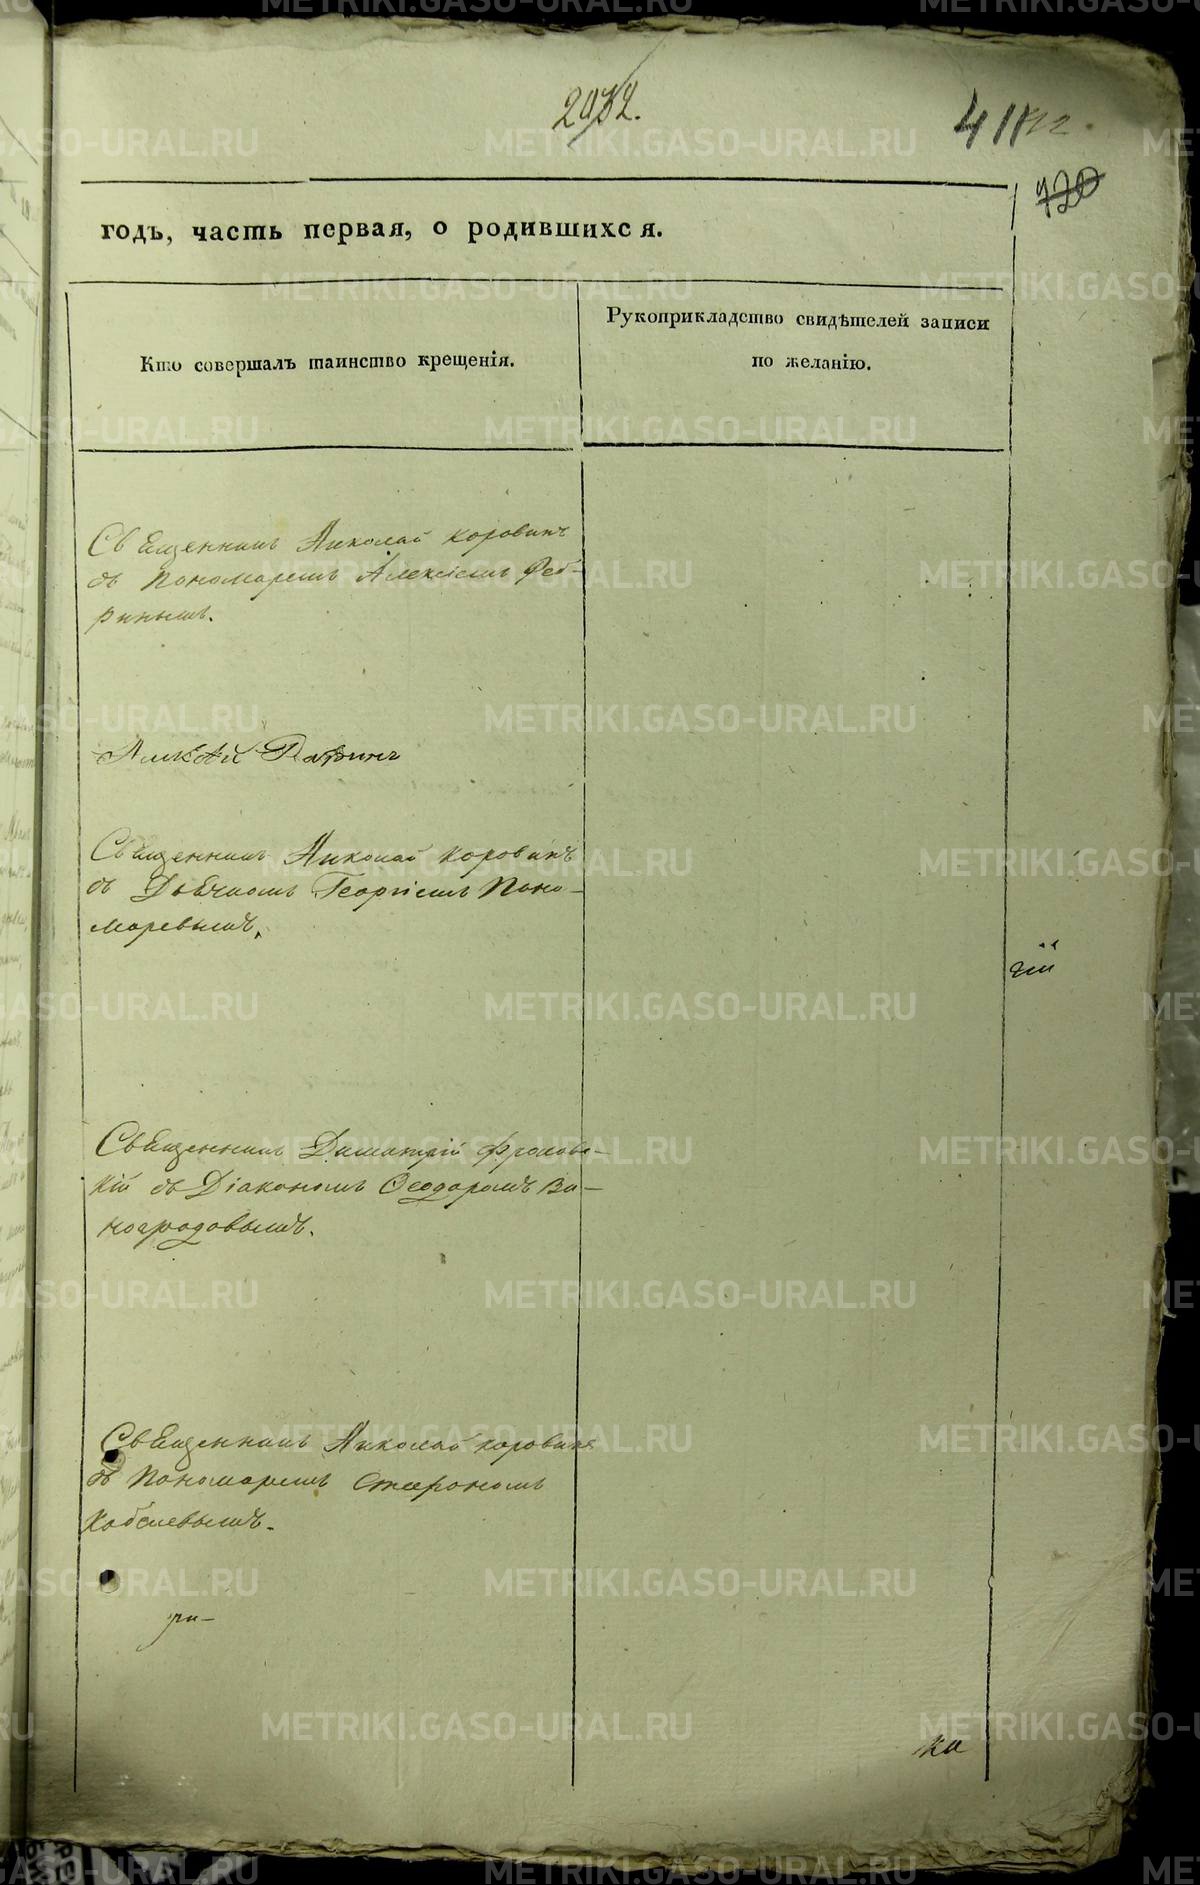 411
120
годъ, часть первая, о родившихся.
Кто совершалъ таинство крещенія.
Рукоприкладство свидѣтелей записи
по желанію.
Священникъ Николай Коровинъ
съ Пономаремъ Алексіемъ Реб-
ринымъ.
Священникъ Николай Коровинъ
съ Дьячкомъ Георгіемъ Поно-
маревымъ.
Священникъ Димитрій Фроловс-
кій съ Діакономъ Ѳеодоромъ Ви-
ноградовымъ.
Священникъ Николай Коровинъ
съ Пономаремъ Стефаномъ
ка
METRIKI.GASO-URAL.RU